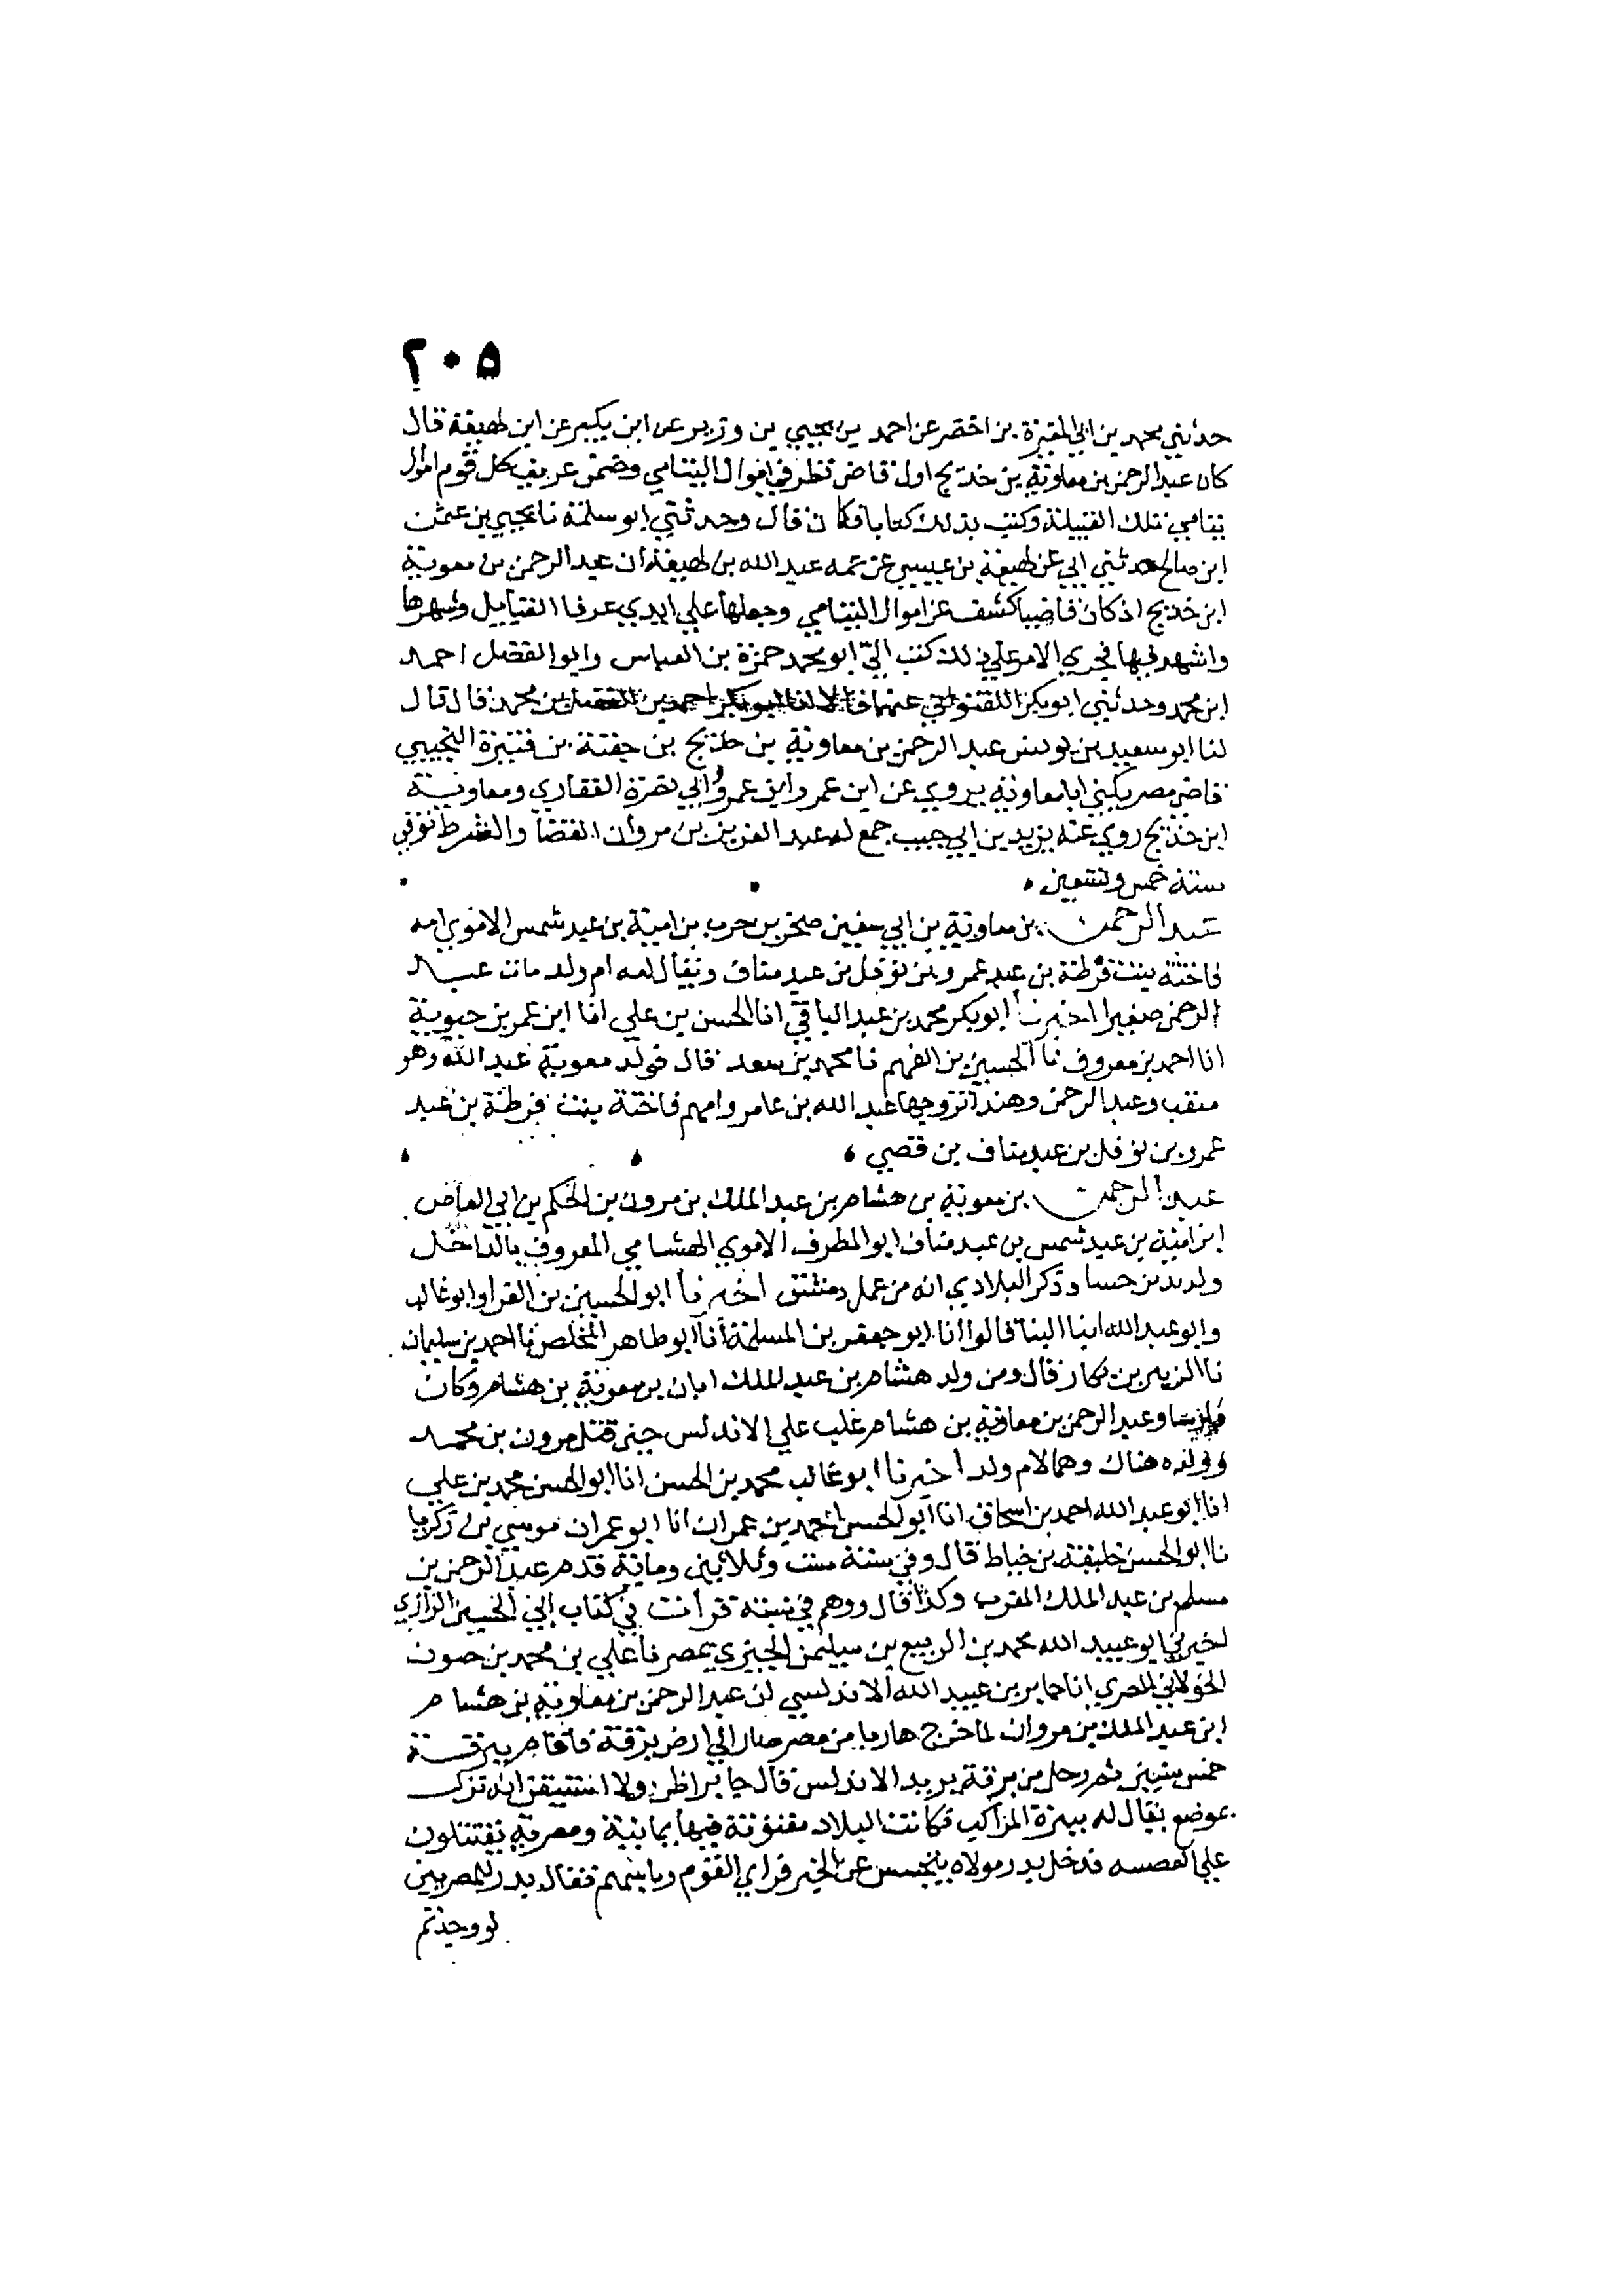 ٢٠٥
حدثني محمد بن ابي المغيرة بن اخضر عن احمد بن يحيى بن وزير عن ابن بكير عن ابن لهيعة قال
كان عبد الرحمن بن معاوية بن خديج اول قاض نظر في اموال اليتامي وضمن عريف كل قوم اموال
يتامي تلك القبيلة وكتب بذلك كتابا فكان قال وحدثني ابو سلمة نا يحيي بن عثمن
ابن صالح حدثني ابي عن لهيعة بن عيسي عن عمه عبد الله بن لهيعة ان عبد الرحمن بن معوية
ابن خديج اذ كان قاضيا كشف عن اموال اليتامي وجعلها علي ايدي عرفا القبايل وشهرها
واشهد فيها فجري الامر علي ذلك كتب الي ابو محمد حمزة بن العباس وابو الفضل احمد
ابن محمد وحدثني ابو بكر اللفتواني عنهما قالا انا ابو بكر احمد بن الفضل بن محمد قال قال
لنا ابو سعيد بن يونس عبد الرحمن بن معاوية بن خديج بن جفنة بن قتيرة التجيبي
قاضي مصر يكني ابا معاوية يروي عن ابن عمر وابن عمرو وابي بصرة الغفاري ومعاوية
ابن خديج روي عنه يزيد بن ابي حبيب جمع له عبد العزيز بن مروان القضا والشرط توفي
سنة خمس وتسعين
عبد الرحمن بن معاوية بن ابي سفين صخر بن حرب بن امية بن عبد شمس الاموي امه
فاختة بنت قرظة بن عبد عمرو بن نوفل بن عبد مناف ويقال امه ام ولد مات عبد
الرحمن صغيرا اخبرنا ابو بكر محمد بن عبد الباقي انا الحسن بن علي انا ابن عمر بن حيوية
انا احمد بن معروف نا الحسين بن الفهم نا محمد بن سعد قال فولد معوية عبد الله وهو
منقب وعبد الرحمن وهندا تزوجها عبد الله بن عامر وامهم فاختة بنت قرظة بن عبد
عمرو بن نوفل بن عبد مناف بن قصي
عبد الرحمن بن معوية بن هشام بن عبد الملك بن مرون بن الحكم بن ابي العاص
ابن امية بن عبد شمس بن عبد مناف ابو المطرف الاموي الهشامي المعروف بالداخل
ولد بدير حسا وذكر البلاذري انه من عمل دمشق اخبرنا ابو الحسين بن الفرا وابو غالب
وابو عبد الله ابنا البنا قالوا انا ابو جعفر بن المسلمة انا ابو طاهر المخلص نا احمد بن سليمان
نا الزبير بن بكار قال ومن ولد هشام بن عبد الملك ابان بن معوية بن هشام وكان
فارسا وعبد الرحمن بن معاوية بن هشام غلب علي الاندلس حين قتل مرون بن محمد
وولده هناك وهما لام ولد اخبرنا ابو غالب محمد بن الحسن انا ابو الحسن محمد بن علي
انا ابو عبد الله احمد بن اسحاق انا ابو الحسن احمد بن عمران انا ابو عمران موسي بن زكريا
نا ابو الحسن خليفة بن خياط قال وفي سنة ست وثلاثين وماية قدم عبد الرحمن بن
مسلم بن عبد الملك المغرب وكذا قال ووهم في نسبه قرات في كتاب ابي الحسين الرازي
اخبرني ابو عبيد الله محمد بن الربيع بن سيلمن الجيزي بمصر نا علي بن محمد بن حيون
الخولاني المصري انا جابر بن عبيد الله الاندلسي ان عبد الرحمن بن معاوية بن هشام
ابن عبد الملك بن مروان لما خرج هاربا من مصر صار الي ارض برقة فاقام ببرقة
خمس سنين ثم رحل من برقة يريد الاندلس قال جابر اظن ولا استيقن انه نزل
بموضع يقال له بيزة المراكب فكانت البلاد مفتونة فيها يمانية ومضرية يقتتلون
علي العصبية فدخل بدر مولاه يتجسس عن الخبر فراي القوم وما بينهم فقال بدر للمضريين
لو وجدتم